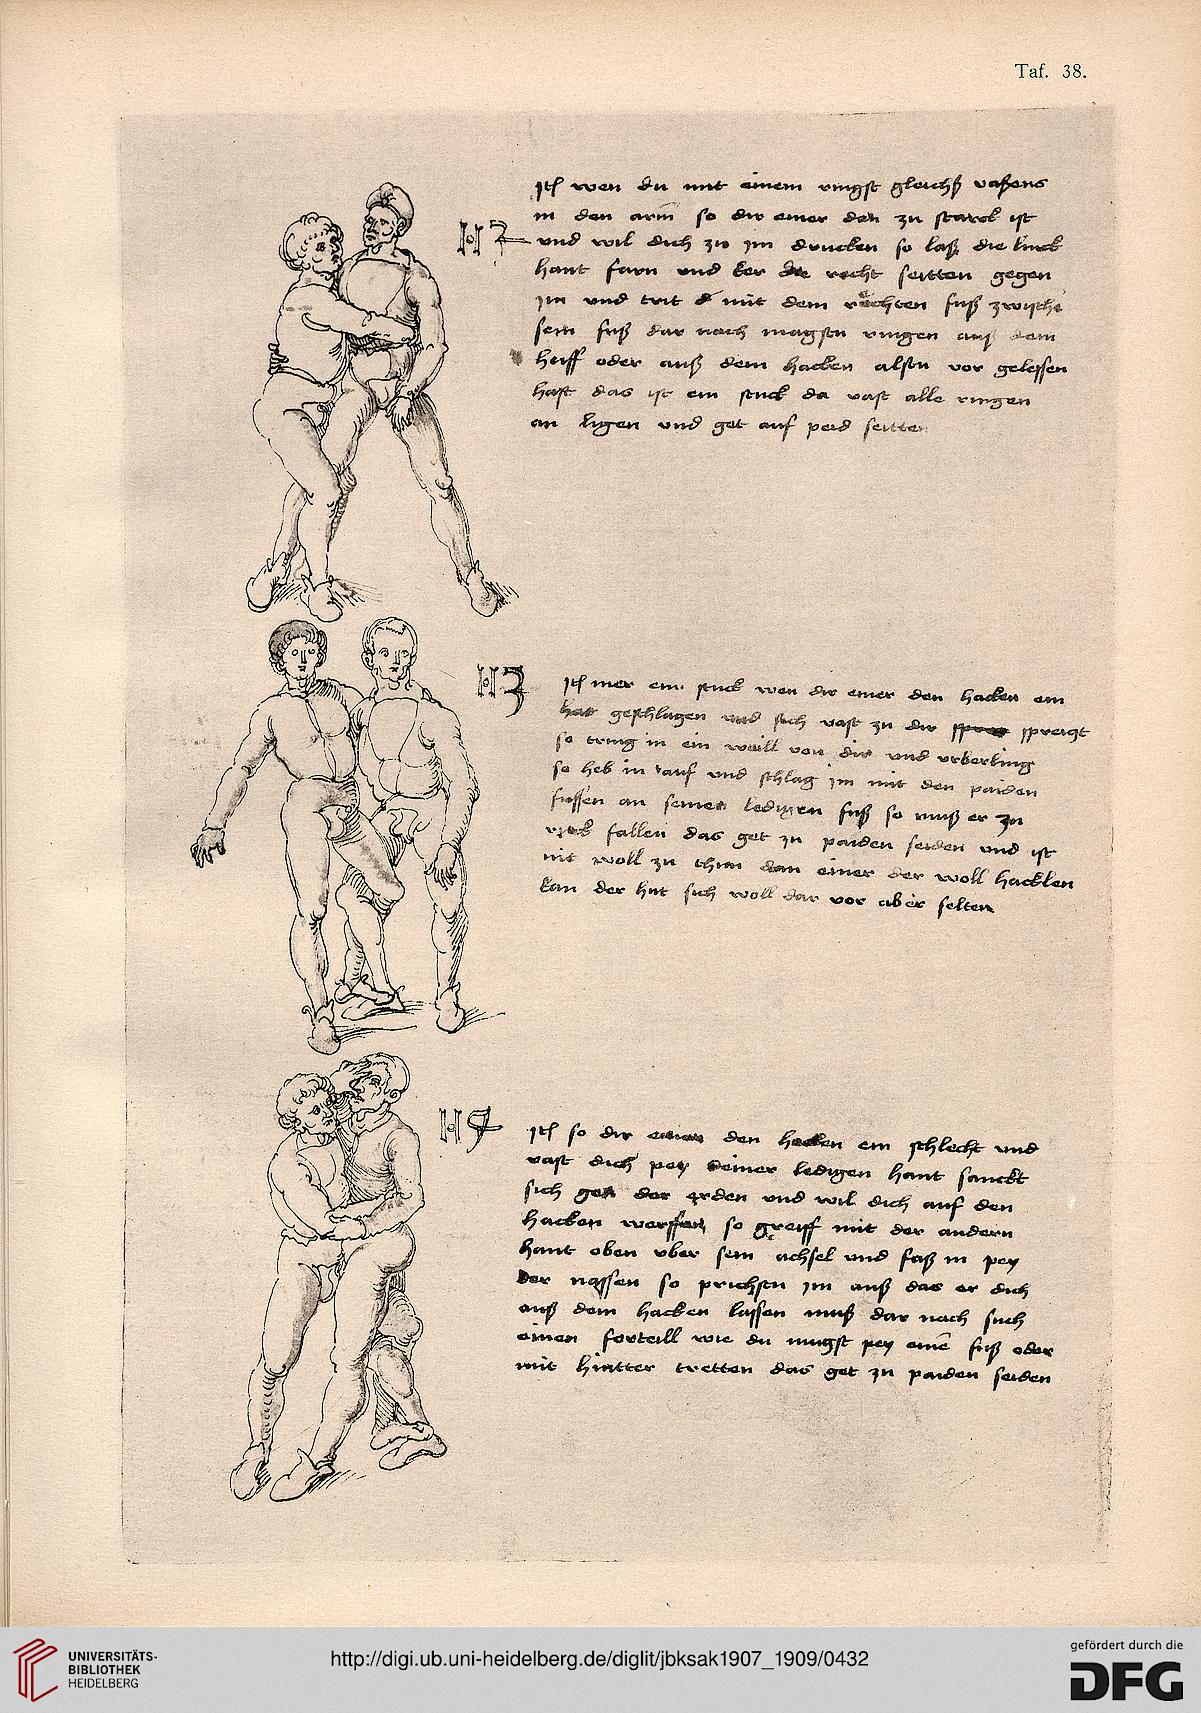 Taf. 38.
Itē wen du mit einem ringst gleichß vaßens
in den arm̄ so dir einer dan zu starck ist
und wil dich zu im drucken so laß die linck
hant farn und ker die recht seitten gegen
im und trit mit dem rechten fuß zwische
sein fuß dar nach magstu ringen auß dem
huff oder auß dem hacken alstu vor gelessen
hast das ist ein stuck da vast alle ringen
an ligen und get auf peid seitten
Itē mer ein stuck wen dir einer den hacken ein
hat geschlagen und sich vast zu dir spreigt
so tring in ein weill von dir und urberling
so heb in auf und schlag im mit den paiden
fussen an seinen ledigen fuß so muß er zu
ruck fallen das get zu paiden seiden und ist
nit woll zu thun dan einer der woll hacklen
kan der hut sich woll dar vor aber selten
Itē so dir einer den hacken ein schlecht und
vast dich pey deiner ledigen hant sanckt
sich gen der erden und wil dich auf den
hacken werffen so greiff mit der andern
hant oben uber sein achsel und faß in pey
der nassen so prichstu im auß das er dich
auß dem hacken lassen muß dar nach such
einen forteill wie du mugst pey einē fuß oder
mit hintter tretten das get zu paiden seiden
UNIVERSITÄTS-
BIBLIOTHEK
HEIDELBERG
http://digi.ub.uni-heidelberg.de/diglit/jbksak1907_1909/0432
gefördert durch die
DFG